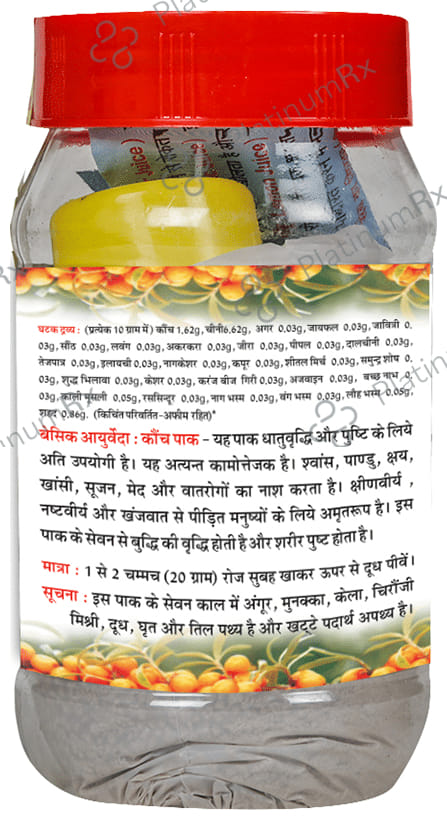 घटक द्रव्य : (प्रत्येक 10 ग्राम में) कौंच 1.62g, चीनी6.62g, अगर 0.03g, जायफल 0.03g, जावित्री 0.
03g, सौंठ 0.03g, लवंग 0.03g, अकरकरा 0.03g, जीरा 0.03g, पीपल 0.03g, दालचीनी 0.03g,
तेजपात्र 0.03g, इलायची 0.03g, नागकेशर 0.03g, कपूर 0.03g, शीतल मिर्च 0.03g, समुन्द्र शोष 0.
03g, शुद्ध भिलावा 0.03g, केशर 0.03g, करंज बीज गिरी 0.03g, अजवाइन 0.03g, बच्छ नाभ 0.
03g, काली मूसली 0.05g, रससिन्दुर 0.03g, नाग भस्म 0.03g, वंग भस्म 0.03g, लौह भस्म 0.05g,
शहद 0.86g. (किचिंत परिवर्तित-अफीम रहित)*
बेसिक आयुर्वेदा : कौंच पाक – यह पाक धातुवृद्धि और पुष्टि के लिये
अति उपयोगी है। यह अत्यन्त कामोत्तेजक है। श्वांस, पाण्डु, क्षय,
खांसी, सूजन, मेद और वातरोगों का नाश करता है। क्षीणवीर्य ,
नष्टवीर्य और खंजवात से पीड़ित मनुष्यों के लिये अमृतरूप है। इस
पाक के सेवन से बुद्धि की वृद्धि होती है और शरीर पुष्ट होता है।
मात्रा : 1 से 2 चम्मच (20 ग्राम) रोज सुबह खाकर ऊपर से दूध पीवें।
सूचना : इस पाक के सेवन काल में अंगूर, मुनक्का, केला, चिरौंजी
मिश्री, दूध, घृत और तिल पथ्य है और खट्टे पदार्थ अपथ्य है।
PlatinumRx
PlatinumRx
PlatinumRx